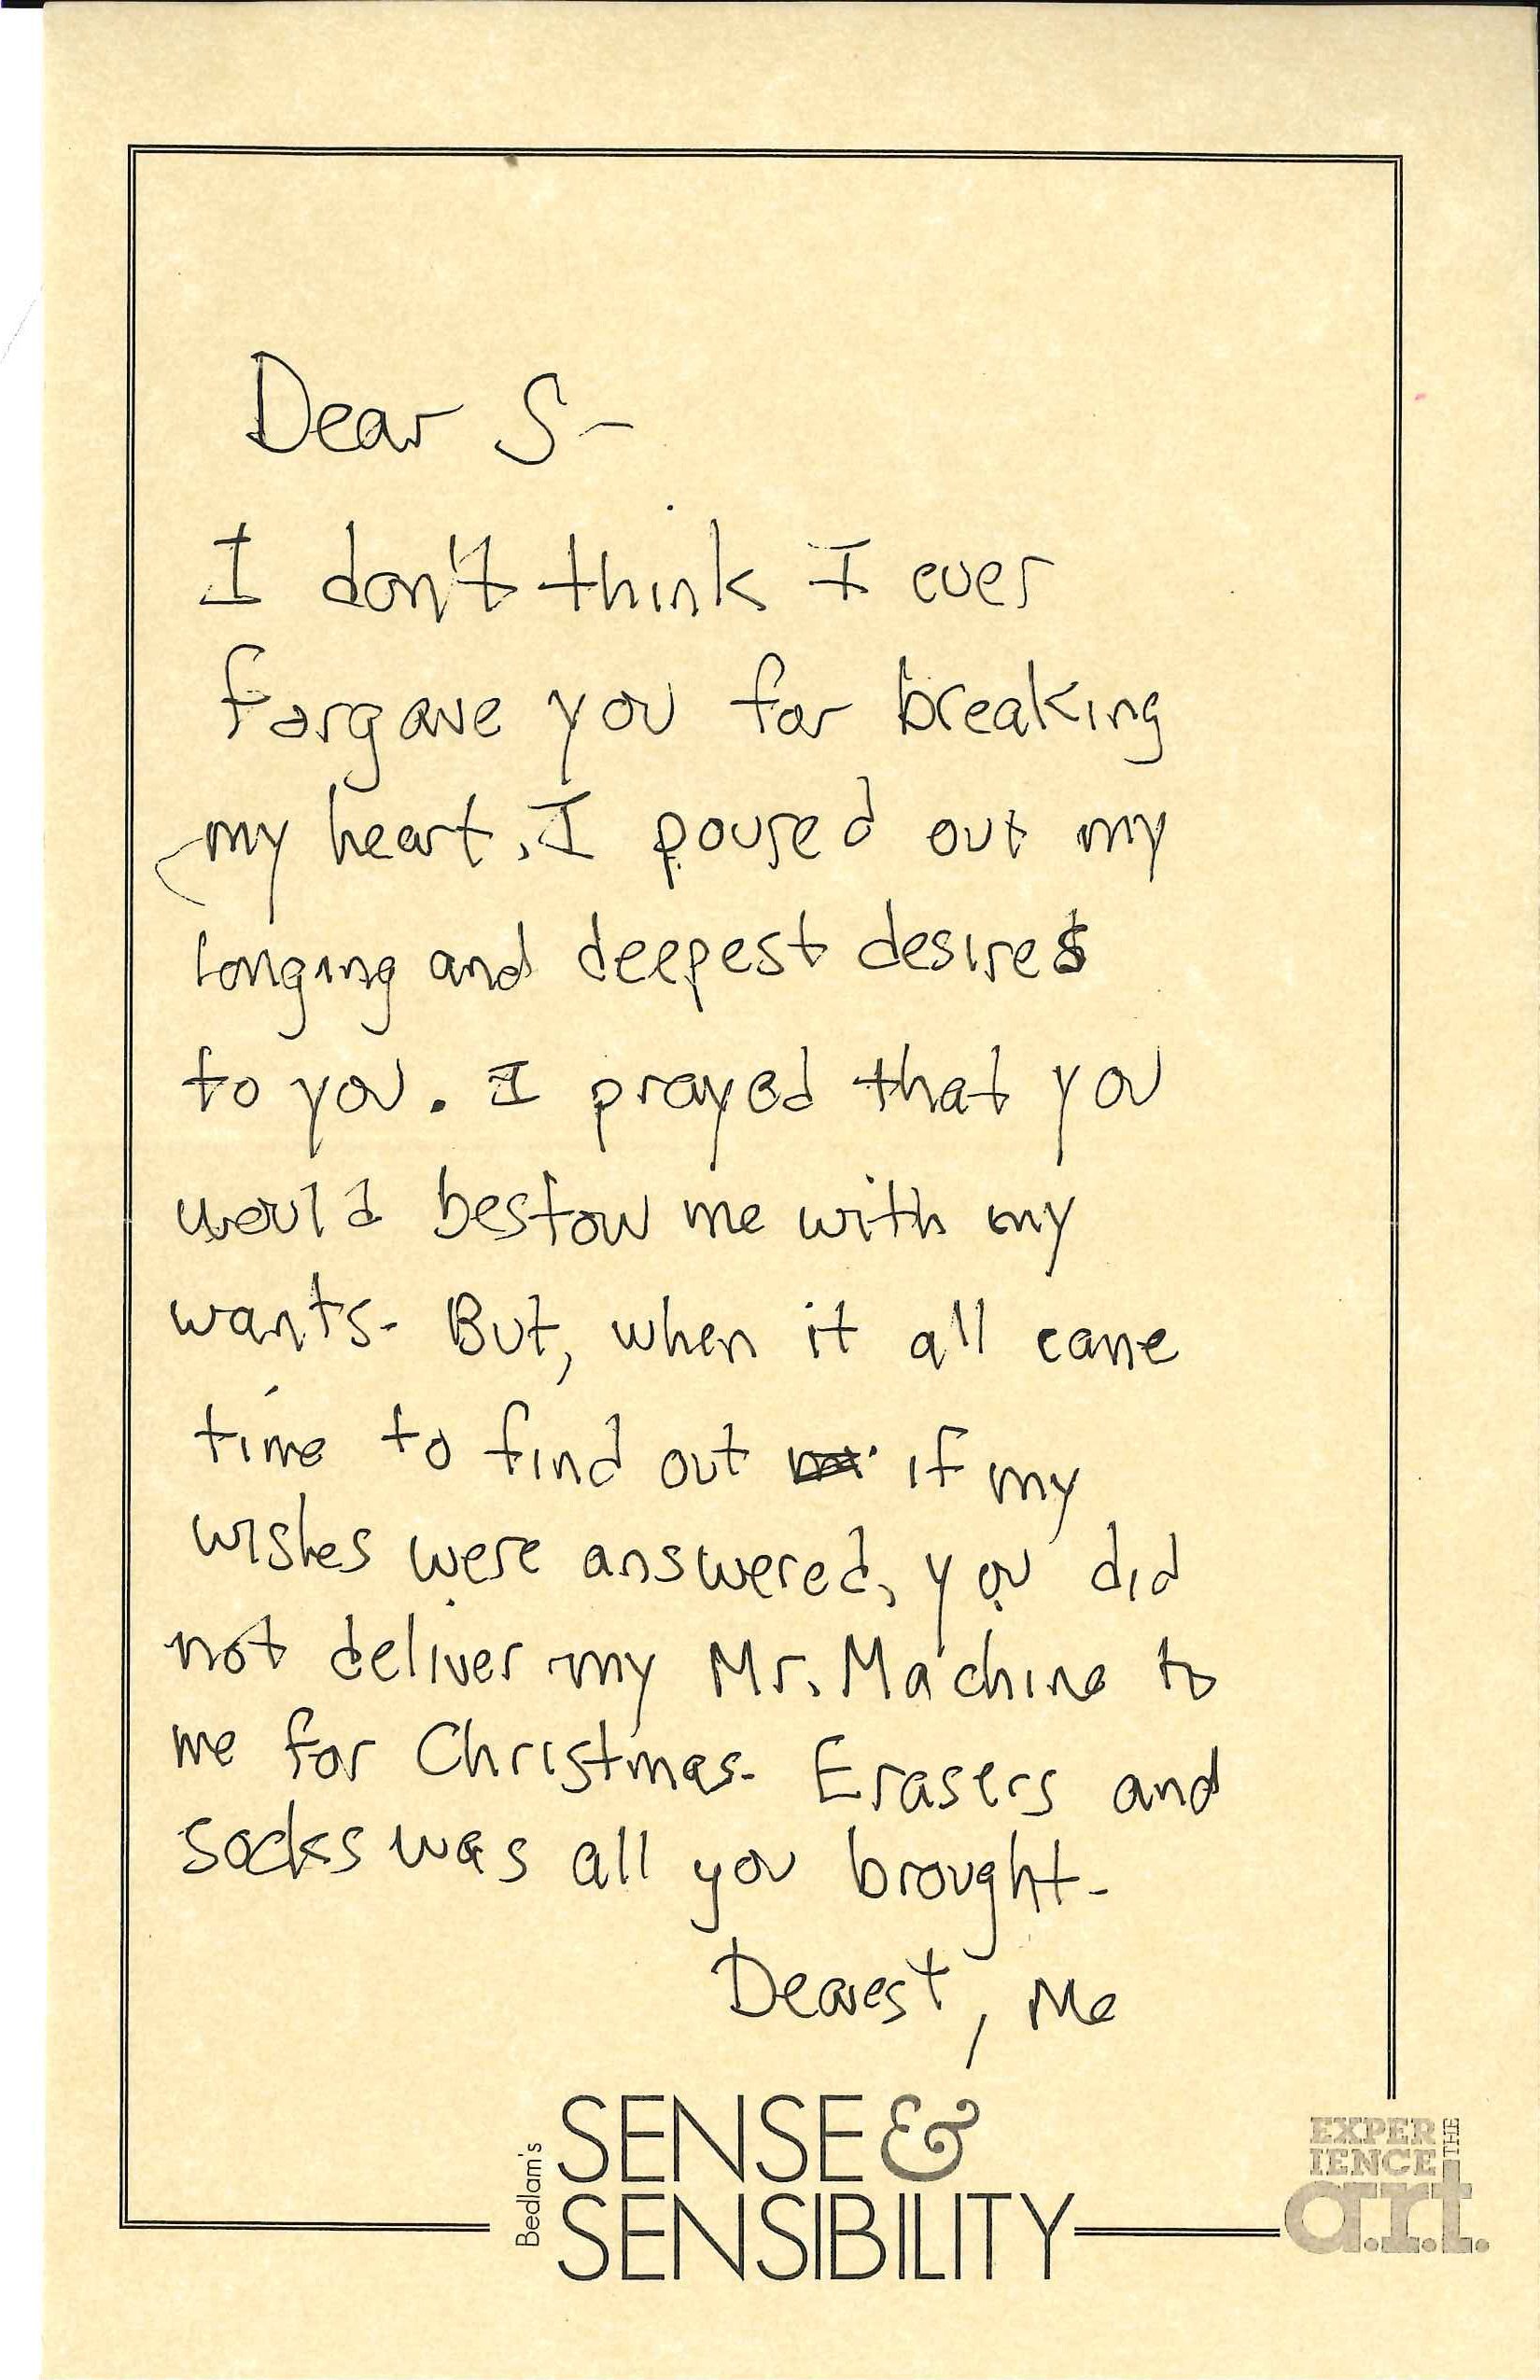 Dear S-
I don't think I ever
forgave you for breaking
my heart. I poured out my
longing and deepest desires
to you. I prayed that you
would bestow me with my
wants. But, when it all came
time to find out if my
wishes were answered, you did
not deliver my Mr. Machine to
me for Christmas. Erasers and
socks was all you brought.
Dearest, Me
Bedlam's
SENSE &
SENSIBILITY
EXPER
IENCE THE
a.r.t.